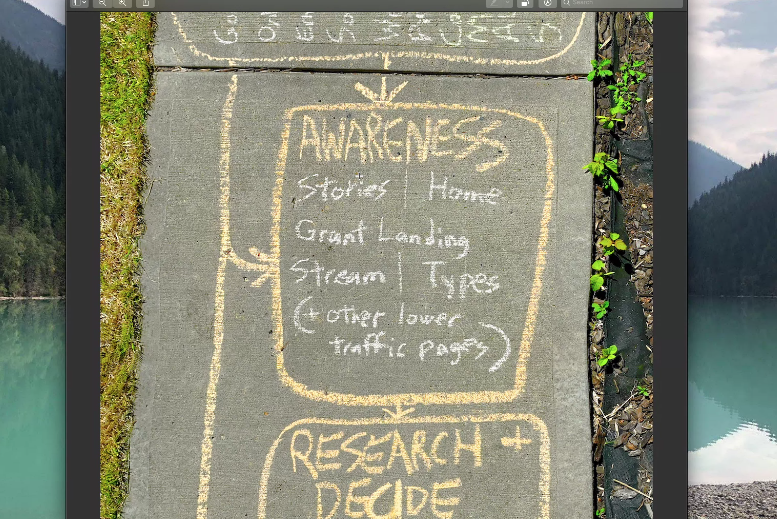 Search
AWARENESS
Stories | Home
Grant Landing
Stream | Types
(+ other lower
traffic pages)
RESEARCH +
DECIDE